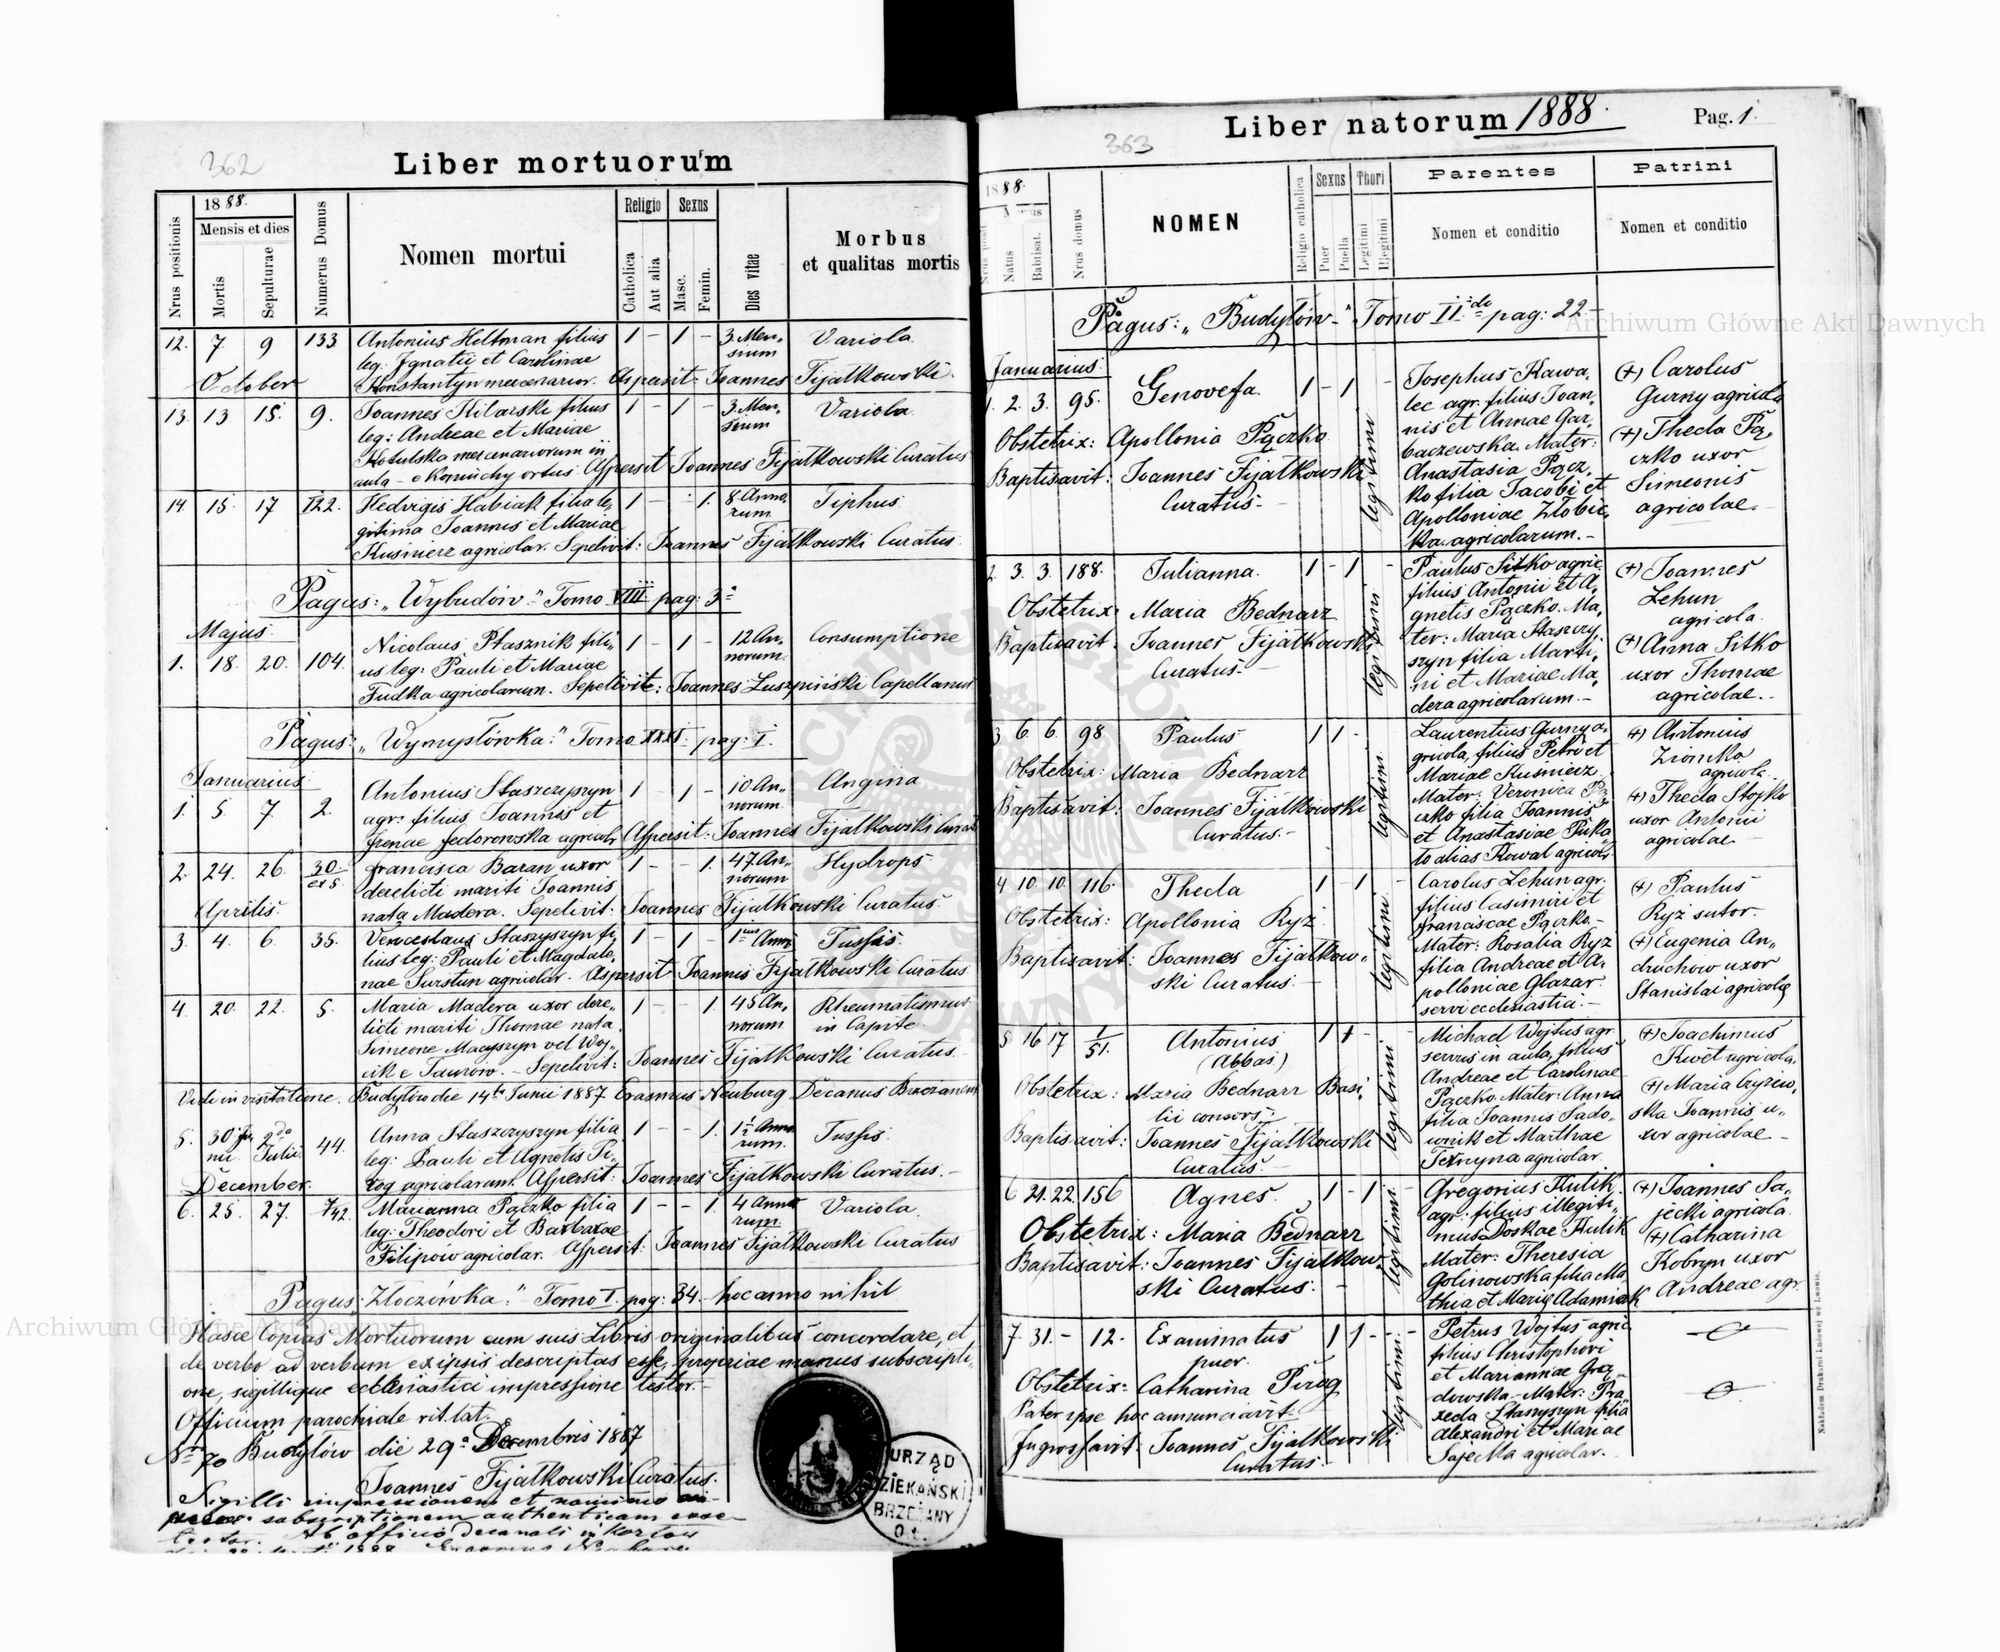 362
Liber mortuorum
Nrus positionis
1888.
Mensis et dies
Mortis
Sepulturae
Numerus Domus
Nomen mortui
Religio
Catholica
Aut alia
Sexus
Masc.
Femin.
Dies vitae
Morbus
et qualitas mortis
12. 7 9 133 Antonius Heltman filius 1 - 1 - 3 Men- Variola
leg: Ignatii et Carolinae sium
October Konstantyn mercenarior. Aspersit: Joannes Fijałkowski.
13. 13 15. 9. Joannes Kilarski filius 1 - 1 - 3 Men- Variola
leg: Andreae et Mariae sium
Hotulska mercenariorum in
aula - e Koniuchy ortus. Aspersit Joannes Fijałkowski Curatus
14. 15 17 122. Hedvigis Habiak filia le- 1 - - 1. 8 Anno- Tiphus
gitima Joannis et Mariae rum
Kusnierz agricolar. Sepelivit: Joannes Fijałkowski Curatus.
Pagus: „Wybudów." Tomo VIII pag: 3
Majus.
1. 18. 20. 104. Nicolaus Ptasznik fili- 1 - 1 - 12 An- Consumptione
us leg: Pauli et Mariae norum
Fudka agricolarum. Sepelivit: Joannes Łuszpiński Capellanus
Pagus: „Wymysłówka:" Tomo XXXI. pag: I.
Januarius.
1. 5. 7. 2. Antonius Staszczyszyn 1 - 1 - 10 An- Angina
agr: filius Joannis et norum
Irenae Fedorowska agricolr. Aspersit: Joannes Fijałkowski Curat
2. 24. 26. 30. et 5 Francisca Baran uxor 1 - - 1. 47 An- Hydrops
derelicti mariti Joannis norum
Aprilis. nata Madera. Sepelivit: Joannes Fijałkowski Curatus.
3. 4. 6. 35. Venceslaus Staszyszyn fi- 1 - 1 - Anni Tussis.
lius leg: Pauli et Magdale-
nae Surstun agricolar. Aspersit Joannis Fijałkowski Curatus.
4. 20. 22. 5. Maria Madera uxor dere- 1 - - 1. 45 An- Rheumatismus
licti mariti Thomae nata norum in Capite
Simeone Macyszyn vel Woj-
cik e Taurów. - Sepelivit: Joannes Fijałkowski Curatus.
Vidi in visitatione. Budyłów die 14 Junii 1887 Erasmus Neuburg Decanus Brzezanen
5. 30 Ju- nii 2 Julii. 44. Anna Staszczyszyn filia 1 - - 1. 1½ Anno- Tussis.
leg: Pauli et Agnetis Pi- rum.
December. rog agricolarum. Aspersit: Joannes Fijałkowski Curatus. -
6. 25. 27. 7/42 Marianna Pączko filia 1 - - 1. 4 Anno- Variola.
leg: Theodori et Barbarae rum.
Filipow agricolar. Aspersit: Joannes Fijałkowski Curatus
Pagus: Złoczówka." Tomo I. pag: 34. - hoc anno nihil
Hasce Copias Mortuorum cum suis Libris originalibus concordare, et
de verbo ad verbum ex ipsis descriptas esse, propriae manus subscripti-
one, sigillique ecclesiastici impressione testor. -
Officium parochiale rit. lat.
Nr 70 Budyłów die 29a Decembris 1887
Joannes Fijałkowski Curatus.
Sigilli impressionem et nominis
subscriptionem authenticam esse
testor. Ab officio decanali in Kozłow
URZĄD
DZIEKAŃSKI
BRZEŻANY
363
Liber natorum 1888.
Pag. 1.
1888.
Natus
Babtisat.
Nrus domus
NOMEN
Religio catholica
Sexus
Puer
Puella
Thori
Legitimi
Illegitimi
Parentes
Nomen et conditio
Patrini
Nomen et conditio
Pagus: „Budyłów -" Tomo II pag: 22. -
Januarius.
1. 2. 3. 95. Genovefa. 1 - 1 - legitimi
Obstetrix: Apollonia Pączko
Baptisavit: Joannes Fijałkowski
Curatus. -
Josephus Kawa-
lec agr. filius Joan-
nis et Annae Gar-
baczewska. Mater:
Anastasia Pącz-
ko filia Jacobi et
Apolloniae Złobic-
ka. agricolarum. -
(+) Carolus
Gurny agricola
(+) Thecla Pą-
czko uxor
Simeonis
agricolae. -
2. 3. 3. 188. Julianna. 1 - 1 - legitimi
Obstetrix: Maria Bednarz
Baptisavit: Joannes Fijałkowski
Curatus. -
Paulus Sitko agric.
filius Antonii et A-
gnetis Pączko. Ma-
ter: Maria Staszczy-
szyn filia Marti-
ni et Mariae Ma-
dera agricolarum. -
(+) Joannes
Lehun
agricola.
(+) Anna Sitko
uxor Thomae
agricolae. -
3 6. 6. 98 Paulus 1 1 - legitimi
Obstetrix: Maria Bednarz
Baptisavit: Joannes Fijałkowski
Curatus. -
Laurentius Gurny a-
gricola, filius Petri et
Mariae Kusnierz.
Mater: Veronica Pą-
czko filia Joannis
et Anastasiae Puka-
to alias Kowal agricol.
(+) Antonius
Ziomko
agricola.
(+) Thecla Stopko
uxor Antonii
agricolae -
4 10. 10. 116. Thecla 1 - 1 - legitimi
Obstetrix: Apollonia Ryż
Baptisavit: Joannes Fijałkow-
ski Curatus. -
Carolus Lehun agr.
filius Casimiri et
Franciscae Pączko. -
Mater: Rosalia Ryż
filia Andreae et A-
polloniae Glazar.
servi ecclesiastici. -
(+) Paulus
Ryż sutor.
(+) Eugenia An-
druchow uxor
Stanislai agricolae
5 16 17 1/51. Antonius 1 1 - legitimi
(Abbas.)
Obstetrix: Maria Bednarz Basi-
lii consors.
Baptisavit: Joannes Fijałkowski
Curatus. -
Michael Wojtus agr.
servus in aula, filius
Andreae et Carolinae
Pączko. Mater: Anna
filia Joannis Sado-
wnik et Marthae
agricolar.
(+) Joachimus
Kwet agricola.
(+) Maria Czyżew-
ska Joannis u-
xor agricolae -
6 21. 22. 156 Agnes. 1 - 1 legitimi
Obstetrix: Maria Bednarz
Baptisavit: Joannes Fijałkow-
ski Curatus. -
Gregorius Hulik
agr: filius illegiti-
mus Doskae Hulik
Mater: Theresia
Golinowska filia Ma-
thia et Mariae Adamiak
(+) Joannes Sa-
jecki agricola.
(+) Catharina
Kobryn uxor
Andreae agr.
7 31. - 12. Exanimatus 1 1 - - legitimi
puer.
Obstetrix: Catharina Pirog
Pater ipse hoc annunciavit.
Ingrossavit: Joannes Fijałkowski
Curatus. -
Petrus Wojtus agric.
filius Christophori
et Mariannae Gra-
dowska. - Mater: Pra-
xeda Staszyszyn filia
Alexandri et Mariae
agricolar.
Nakładem Drukarni Ludowej we Lwowie.
Archiwum Główne Akt Dawnych
Archiwum Główne Akt Dawnych
ARCHIWUM GŁÓWNE AKT DAWNYCH